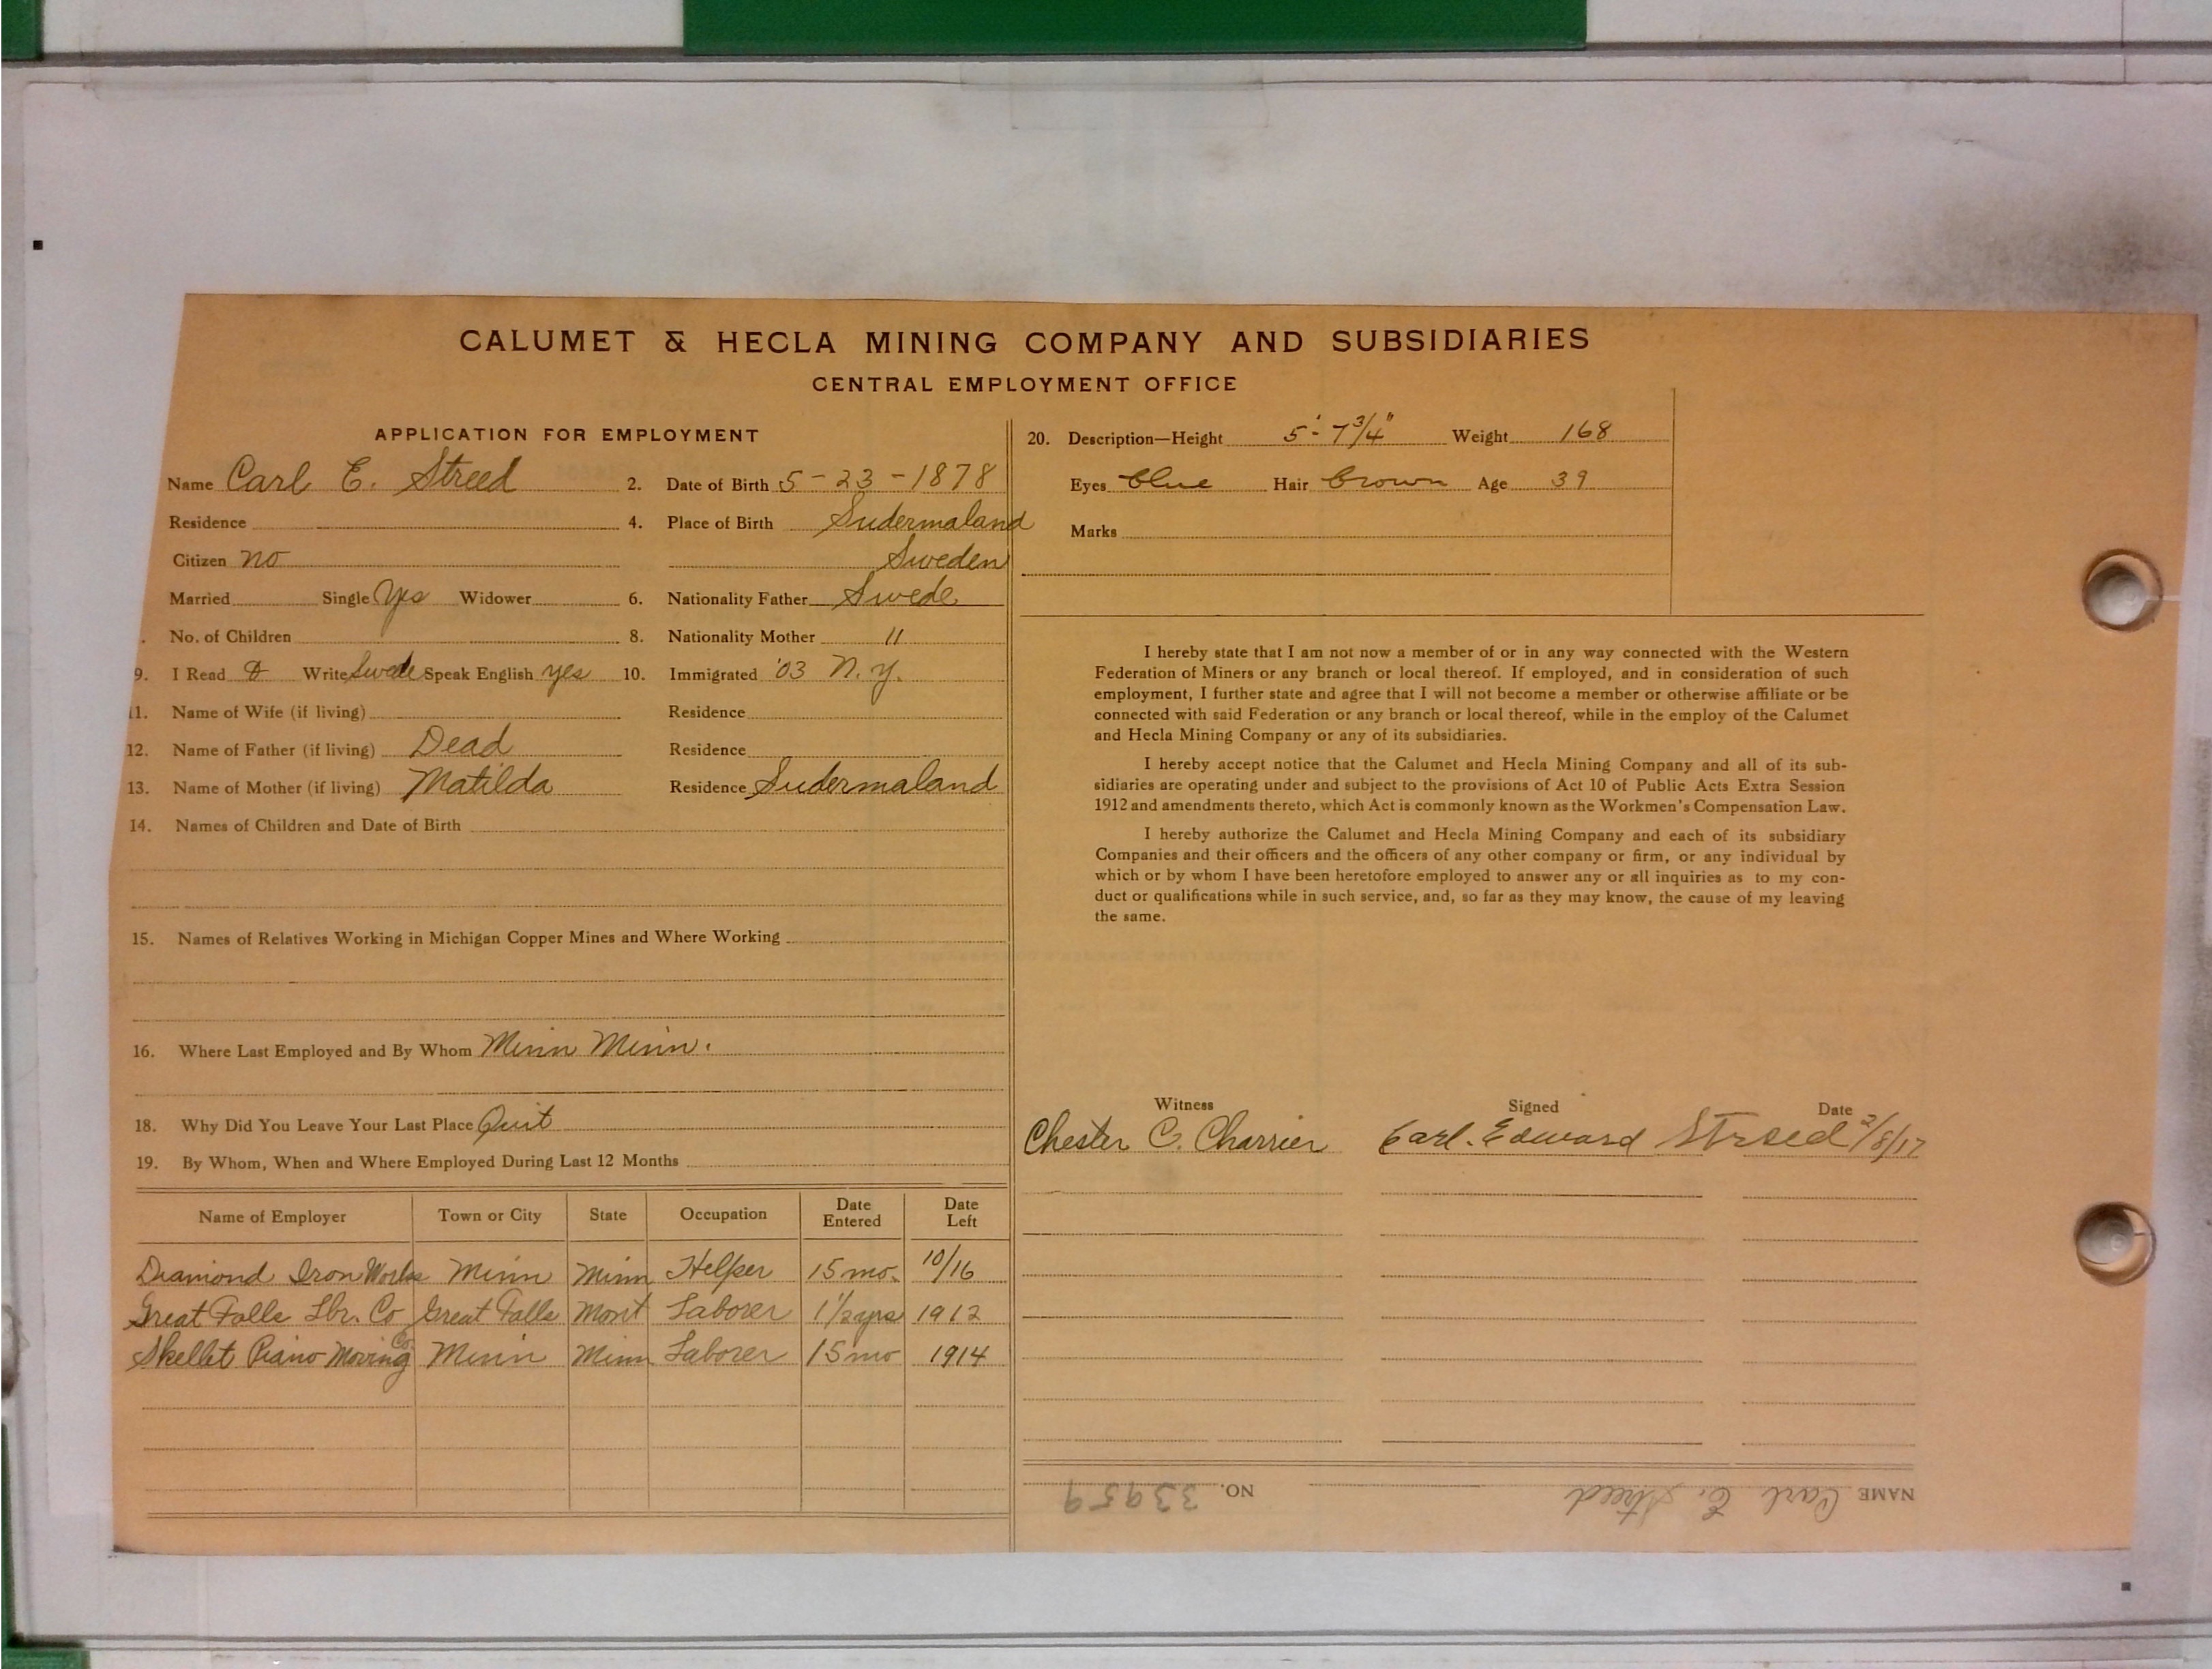 CALUMET & HECLA MINING COMPANY AND SUBSIDIARIES
CENTRAL EMPLOYMENT OFFICE
APPLICATION FOR EMPLOYMENT
Name Carl E. Streed 2. Date of Birth 5-23-1878
Residence 4. Place of Birth Sudermaland
Citizen no Sweden
Married Single Yes Widower 6. Nationality Father Swede
. No. of Children 8. Nationality Mother "
9. I Read & Write Swede Speak English yes 10. Immigrated '03 N.Y.
11. Name of Wife (if living) Residence
12. Name of Father (if living) Dead Residence
13. Name of Mother (if living) Matilda Residence Sudermaland
14. Names of Children and Date of Birth
15. Names of Relatives Working in Michigan Copper Mines and Where Working
16. Where Last Employed and By Whom Minn Minn.
18. Why Did You Leave Your Last Place Quit
19. By Whom, When and Where Employed During Last 12 Months
Name of Employer Town or City State Occupation Date Entered Date Left
Diamond Iron Works Minn Minn Helper 15 mo. 10/16
Great Falls Lbr. Co Great Falls Mont Laborer 1 1/2 yrs 1912
Skellet Piano Moving Co Minn Minn Laborer 15 mo 1914
20. Description—Height 5'-7 3/4" Weight 168
Eyes blue Hair brown Age 39
Marks
I hereby state that I am not now a member of or in any way connected with the Western
Federation of Miners or any branch or local thereof. If employed, and in consideration of such
employment, I further state and agree that I will not become a member or otherwise affiliate or be
connected with said Federation or any branch or local thereof, while in the employ of the Calumet
and Hecla Mining Company or any of its subsidiaries.
I hereby accept notice that the Calumet and Hecla Mining Company and all of its sub-
sidiaries are operating under and subject to the provisions of Act 10 of Public Acts Extra Session
1912 and amendments thereto, which Act is commonly known as the Workmen's Compensation Law.
I hereby authorize the Calumet and Hecla Mining Company and each of its subsidiary
Companies and their officers and the officers of any other company or firm, or any individual by
which or by whom I have been heretofore employed to answer any or all inquiries as to my con-
duct or qualifications while in such service, and, so far as they may know, the cause of my leaving
the same.
Witness Signed Date
Chester C. Charrier Carl. Edward Streed 2/8/17
NAME Carl E. Streed NO. 33959